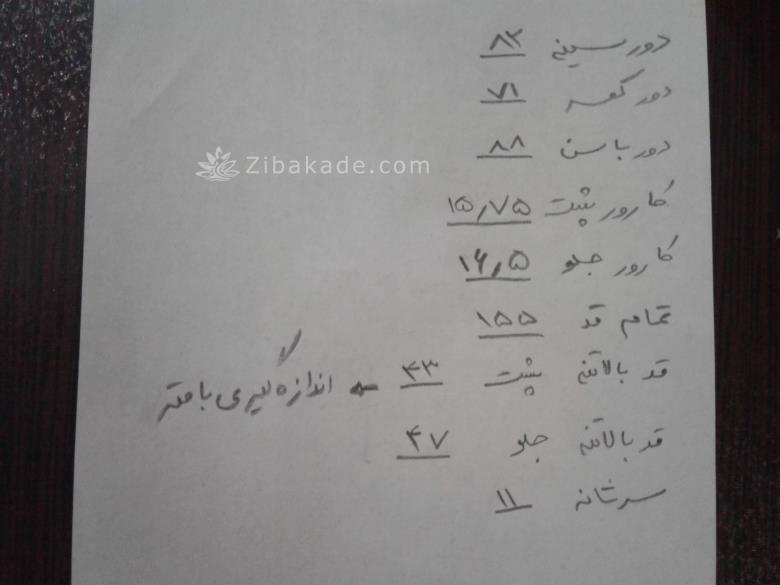 دور سینه ۸۲
دور کمر ۷۱
دور باسن ۸۸
کارور پشت ۱۵٫۷۵
کارور جلو ۱۶٫۵
تمام قد ۱۵۵
قد بالاتنه پشت ۴۳ ← اندازه گیری با متر
قد بالاتنه جلو ۴۷
سرشانه ۱۱
Zibakade.com